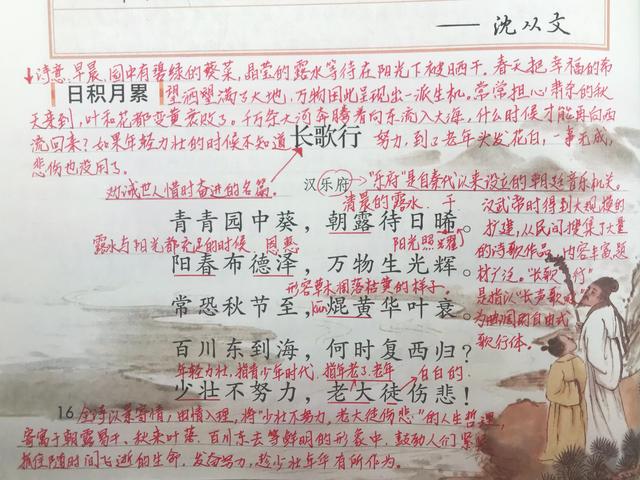 ——沈从文
诗意:早晨,园中有碧绿的葵菜,晶莹的露水等待在阳光下被晒干。春天把幸福的希
日积月累
望洒满了大地,万物因此呈现出一派生机。常常担心肃杀的秋
天来到,叶和花都变黄衰败了。千万条大河奔腾着向东流入大海,什么时候才能再向西
流回来?如果年轻力壮的时候不知道努力,到了老年头发花白,一事无成,
长歌行
悲伤也没用了。
劝诫世人惜时奋进的名篇。
汉乐府
"乐府"是自秦代以来设立的朝廷音乐机关。
清晨的露水 干
汉武帝时得到大规模的
青青园中葵,朝露待日晞。
扩建,从民间搜集了大量
露水与阳光都充足的时候 恩惠
阳光照耀
的诗歌作品,内容丰富题
阳春布德泽,万物生光辉。
材广泛。"长歌行"
形容草木凋落枯黄的样子。
是指以"长声歌咏"
常恐秋节至,焜黄华叶衰。
kūn
为曲调的自由式
歌行体。
百川东到海,何时复西归?
年轻力壮,指青少年时代 指年老,老年 白白的
少壮不努力,老大徒伤悲!
16
全诗以景寄情,由情入理,将"少壮不努力,老大徒伤悲"的人生哲理,
寄寓于朝露易干、秋来叶落、百川东去等鲜明的形象中,鼓励人们紧紧
抓住随时间飞逝的生命,发奋努力,趁少壮年华有所作为。